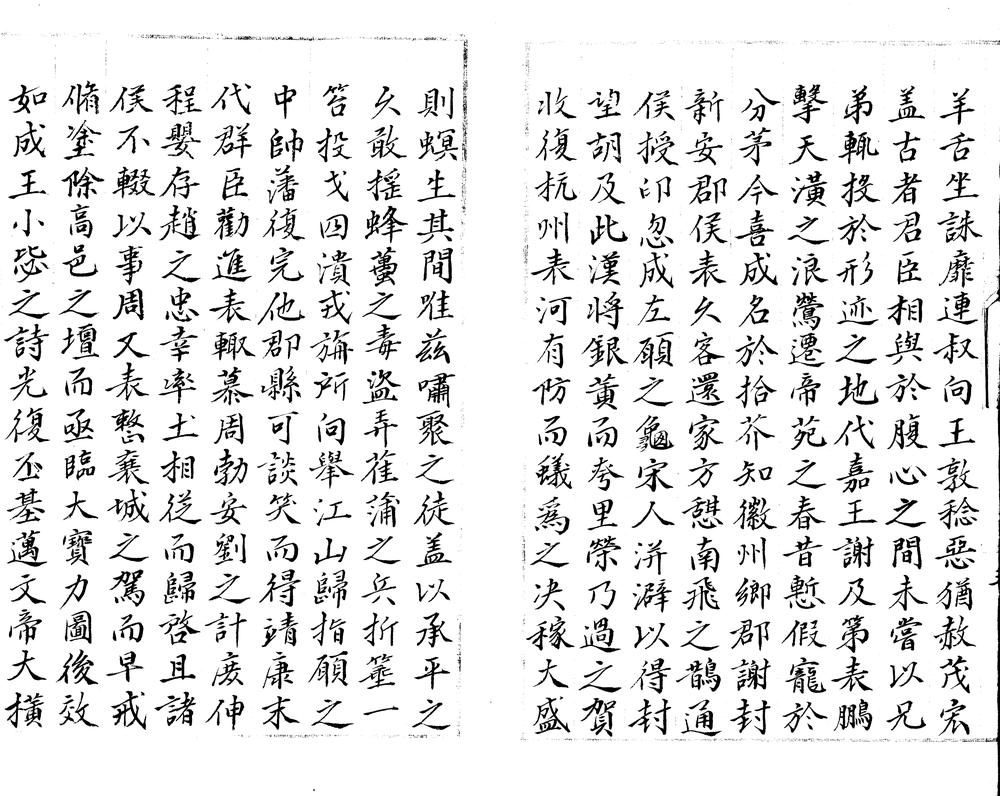 羊舌坐誅靡連叔向王敦稔惡猶赦茂宏
盖古者君臣相與於腹心之間未嘗以兄
弟輒投於形迹之地代嘉王謝及第表鵬
擊天潢之浪鶯遷帝苑之春昔慙假寵於
分茅今喜成名於拾芥知徽州鄉郡謝封
新安郡侯表久客還家方憇南飛之鵲通
侯授印忽成左顧之龜宋人洴澼以得封
望胡及此漢將銀黃而夸里榮乃過之賀
收復杭州表河有防而蟻爲之决稼大盛
則螟生其間唯兹嘯聚之徒盖以承平之
久敢揺蜂蠆之毒盗弄萑蒲之兵折箠一
笞投戈四潰戎旃所向舉江山歸指顧之
中帥藩復完他郡縣可談笑而得靖康末
代群臣勸進表輙慕周勃安劉之計庻伸
程嬰存趙之忠幸率土相從而歸啓且諸
侯不輟以事周又表慗襄城之駕而早戒
脩塗除高邑之壇而亟臨大寶力圖後效
如成王小毖之詩光復丕基邁文帝大橫